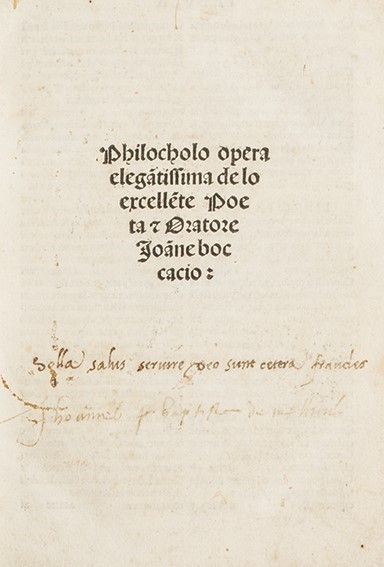 Philocholo opera
elegãtissima de lo
excellẽte Poe
ta ⁊ Oratore
Joãne boc
cacio:
Solla salus servire Deo sunt cetera fraudes
Johannes baptista de